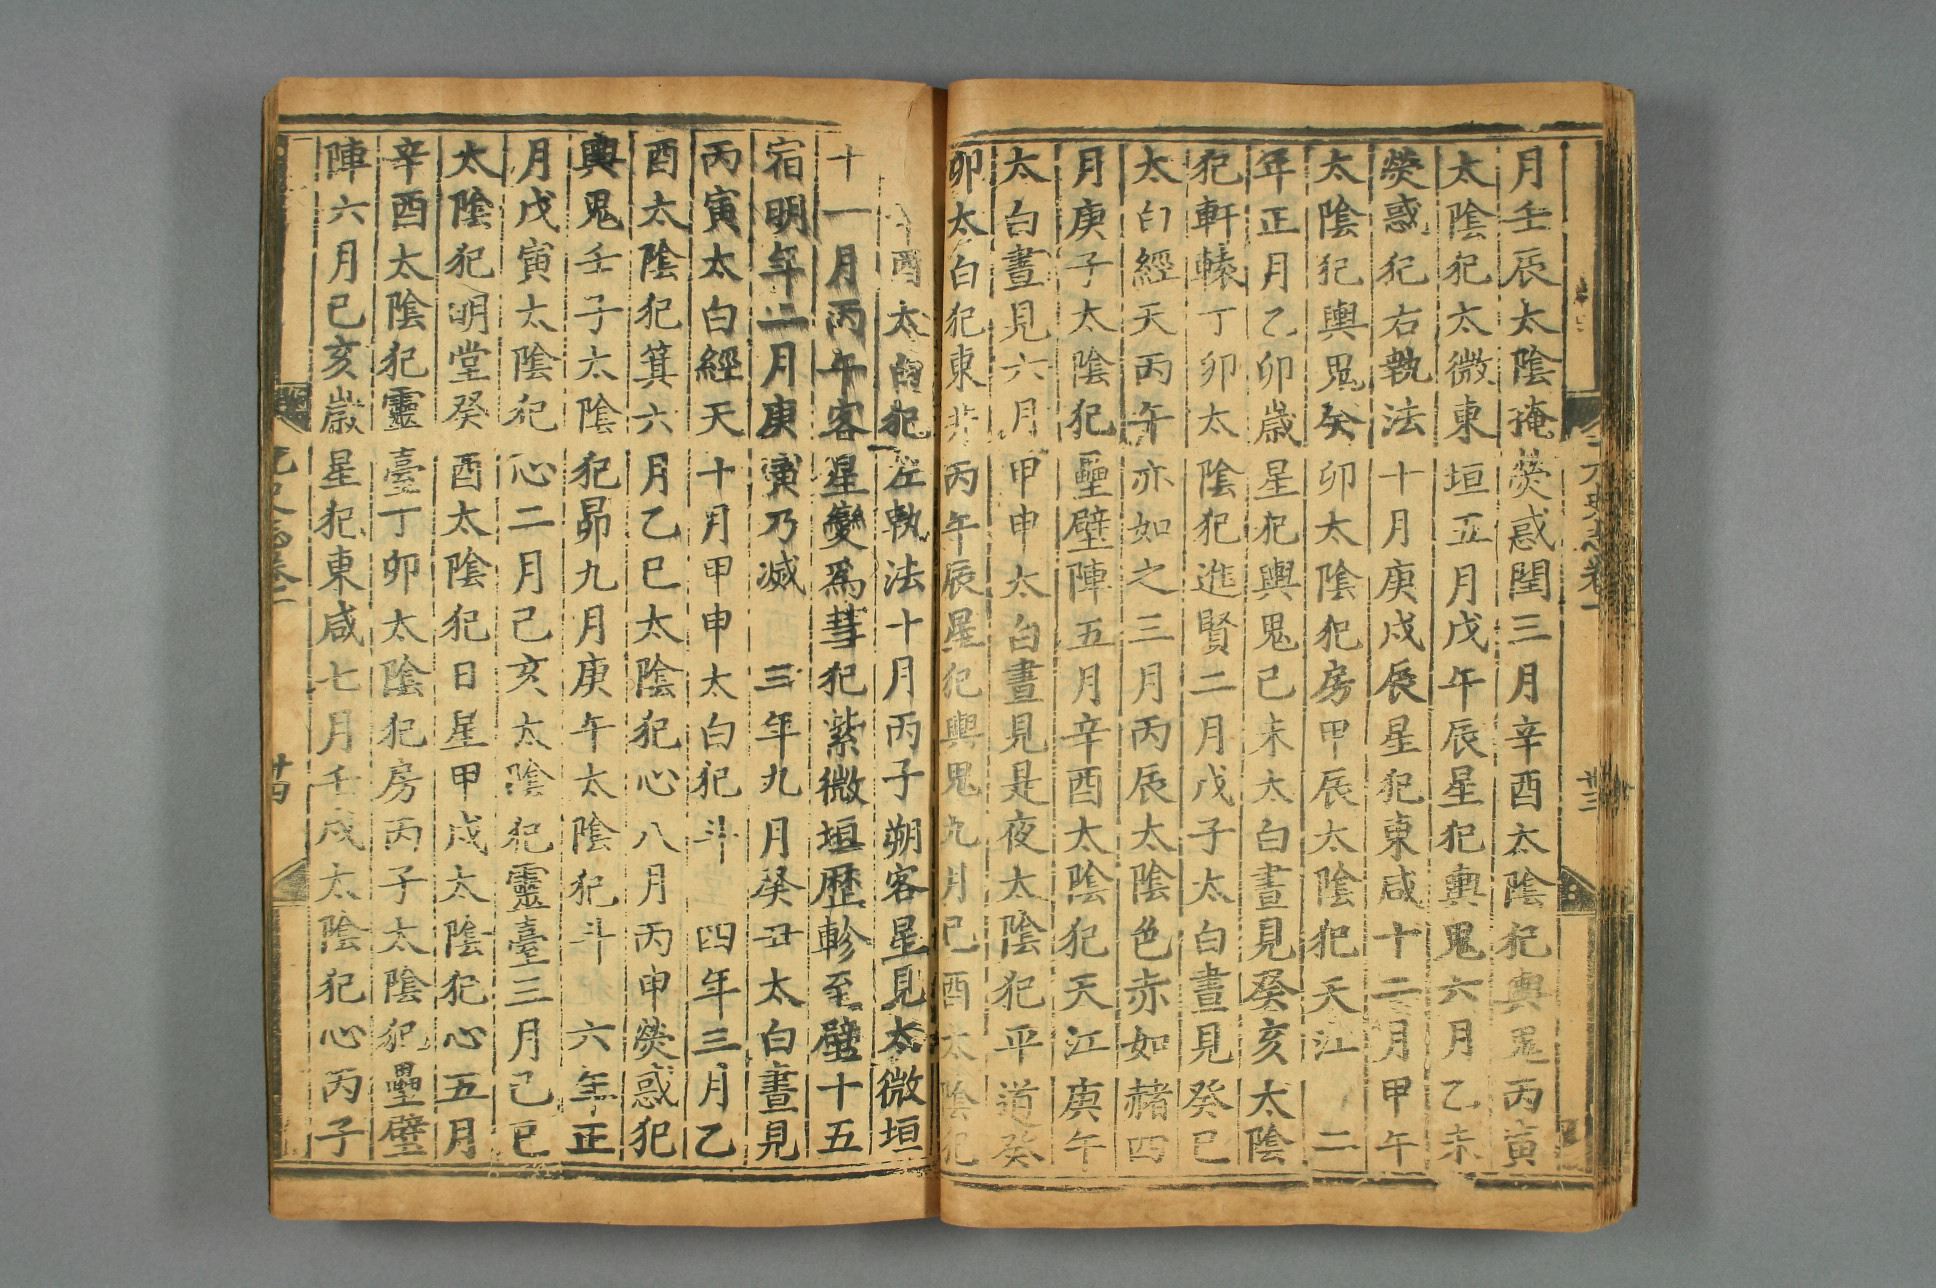 月壬辰太陰掩熒惑閏三月辛酉太陰犯輿鬼丙寅
太陰犯太微東垣五月戊午辰星犯輿鬼六月乙未
熒惑犯右執法十月庚戌辰星犯東咸十二月甲午
太陰犯輿鬼癸卯太陰犯房甲辰太陰犯天江 二
年正月乙卯歲星犯輿鬼己未太白晝見癸亥太陰
犯軒轅丁卯太陰犯進賢二月戊子太白晝見癸巳
太白經天丙午亦如之三月丙辰太陰色赤如赭四
月庚子太陰犯壘壁陣五月辛酉太陰犯天江庚午
太白晝見六月甲申太白晝見是夜太陰犯平道癸
卯太白犯東井丙午辰星犯輿鬼九月己酉太陰犯
酉太白犯左執法十月丙子朔客星見太微垣
十一月丙午客星變爲彗犯紫微垣歷軫至壁十五
宿明年二月庚寅乃滅 三年九月癸丑太白晝見
丙寅太白經天十月甲申太白犯斗 四年三月乙
酉太陰犯箕六月乙巳太陰犯心八月丙申熒惑犯
輿鬼壬子太陰犯昴九月庚午太陰犯斗 六年正
月戊寅太陰犯心二月己亥太陰犯靈臺三月己巳
太陰犯明堂癸酉太陰犯日星甲戌太陰犯心五月
辛酉太陰犯靈臺丁卯太陰犯房丙子太陰犯壘壁
陣六月己亥歲星犯東咸七月壬戌太陰犯心丙子